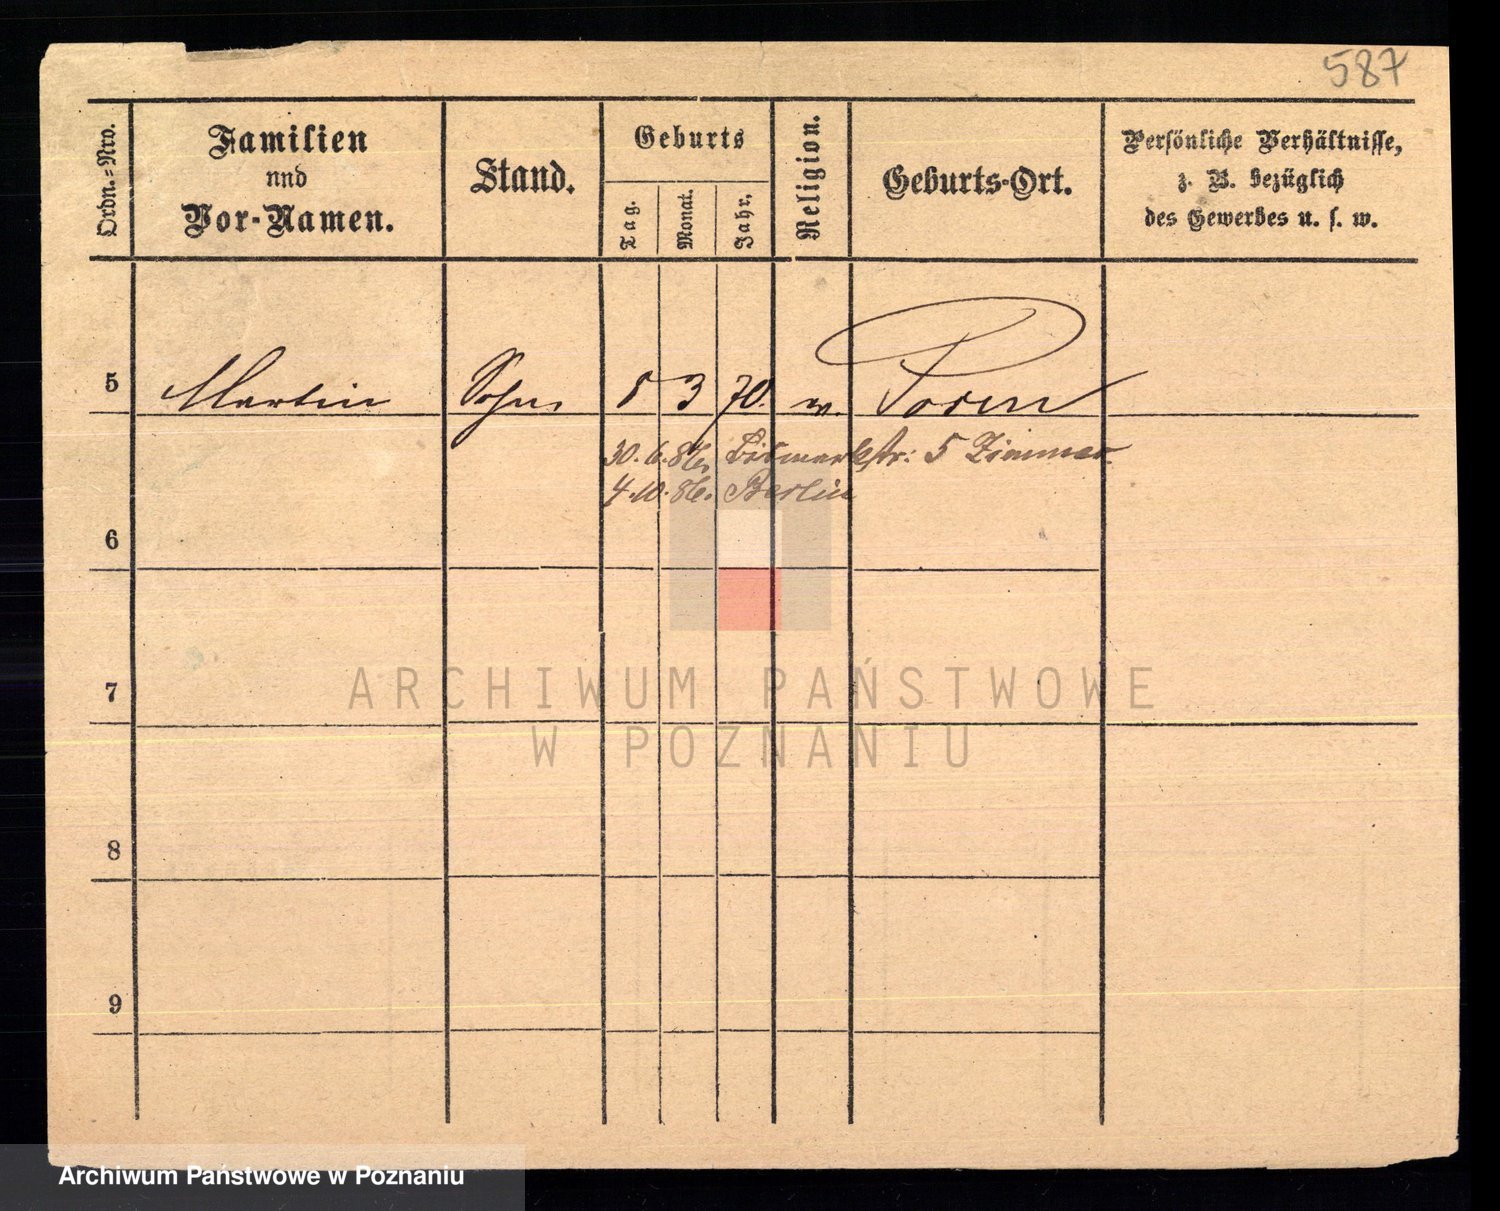 587
Ordn.-Nro.
Familien
und
Vor-Namen.
Stand.
Geburts
Tag.
Monat.
Jahr.
Religion.
Geburts-Ort.
Persönliche Verhältnisse,
z. B. bezüglich
des Gewerbes u. s. w.
5 Martin Sohn 5 3 70. m. Posen
30.6.86. Bismarckstr: 5 Zimmer.
4.10.86. Berlin
6
7
ARCHIWUM PAŃSTWOWE
W POZNANIU
8
9
Archiwum Państwowe w Poznaniu